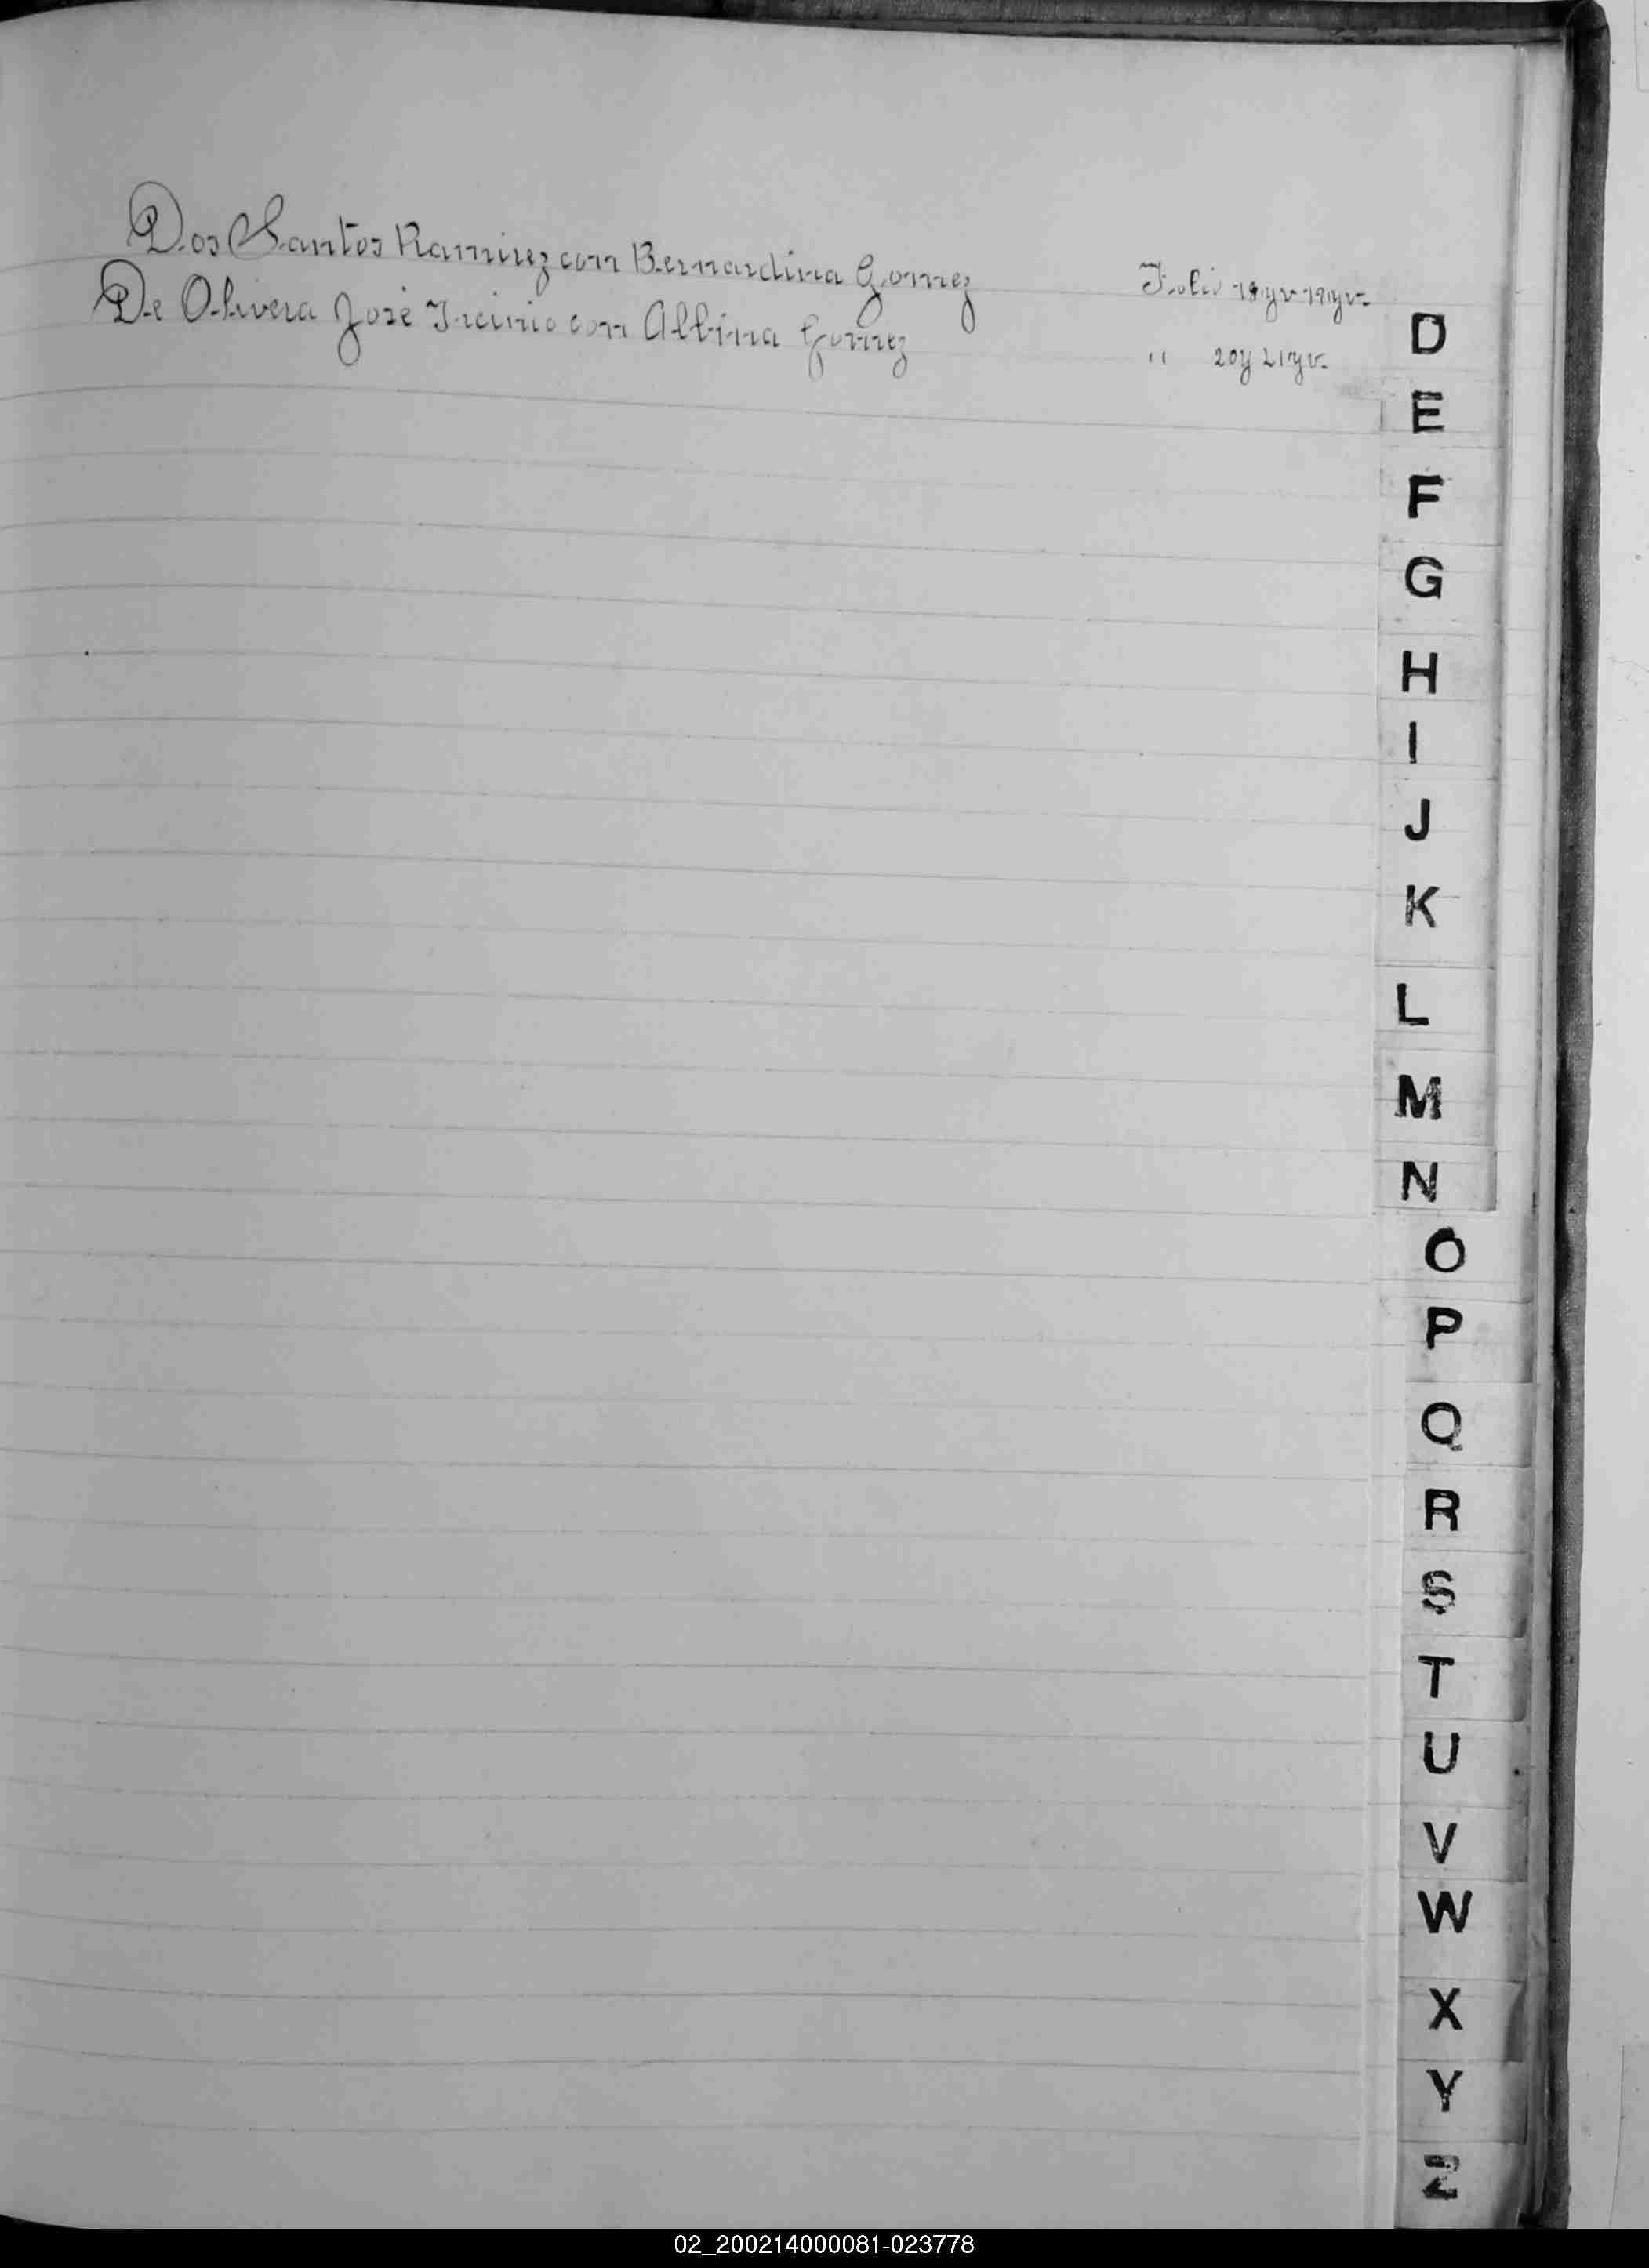 Dos Santos Ramirez con Bernardina Gomez Folio 18 y v 19 y v.
De Olivera José Irineio con Albina Gomez " 20 y 21 y v.
D
E
F
G
H
I
J
K
L
M
N
O
P
Q
R
S
T
U
V
W
X
Y
Z
02_200214000081-023778